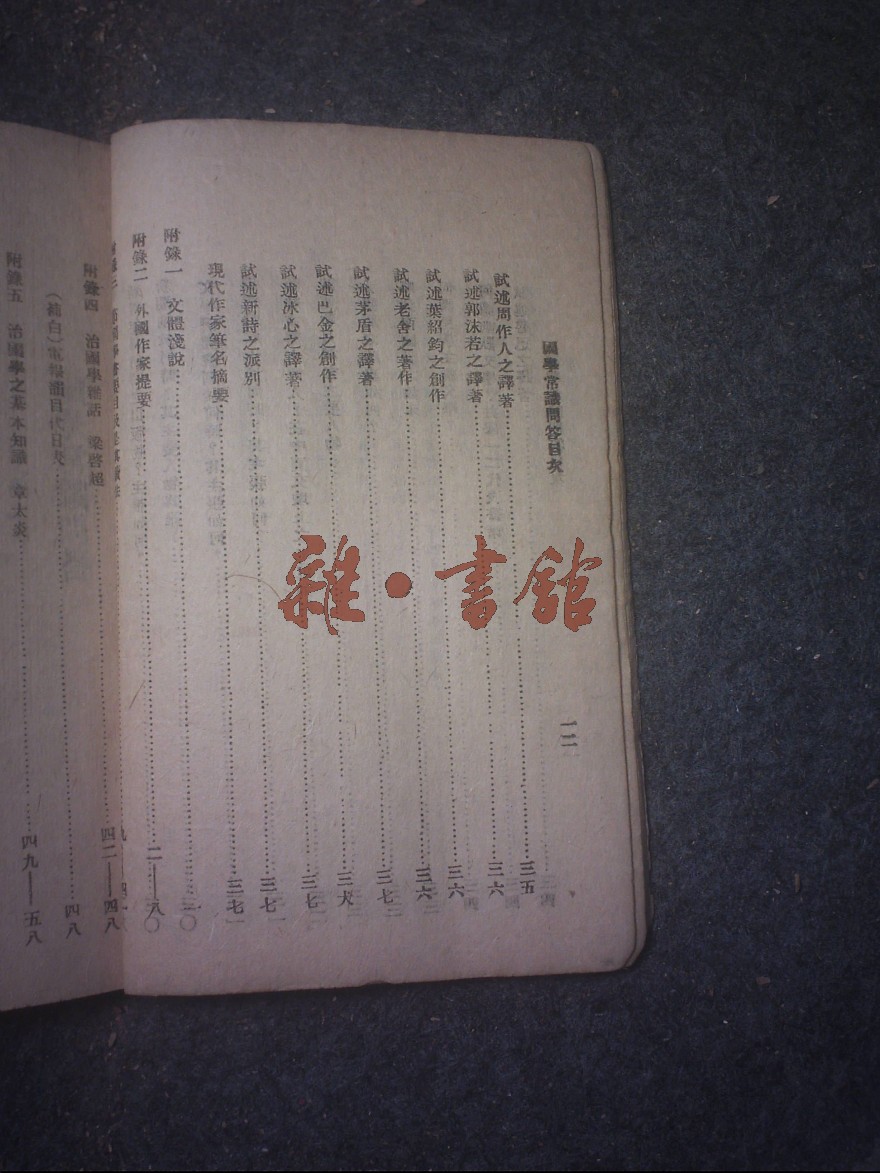 國學常識問答目次
一二
試述周作人之譯著…………三五
試述郭沫若之譯著…………三六
試述葉紹鈞之創作…………三六
試述老舍之著作…………三六
試述茅盾之譯著…………三七
試述巴金之創作…………三六
試述冰心之譯著…………三七
試述新詩之派別…………三七
現代作家筆名摘要…………三七
附錄一 文體淺說…………
附錄二 外國作家提要…………二——八〇
附錄四 治國學雜話 梁啓超…………四二——四八
(補白)電報韻目代日表…………四八
附錄五 治國學之基本知識 章太炎…………四九——五八
雜·書館